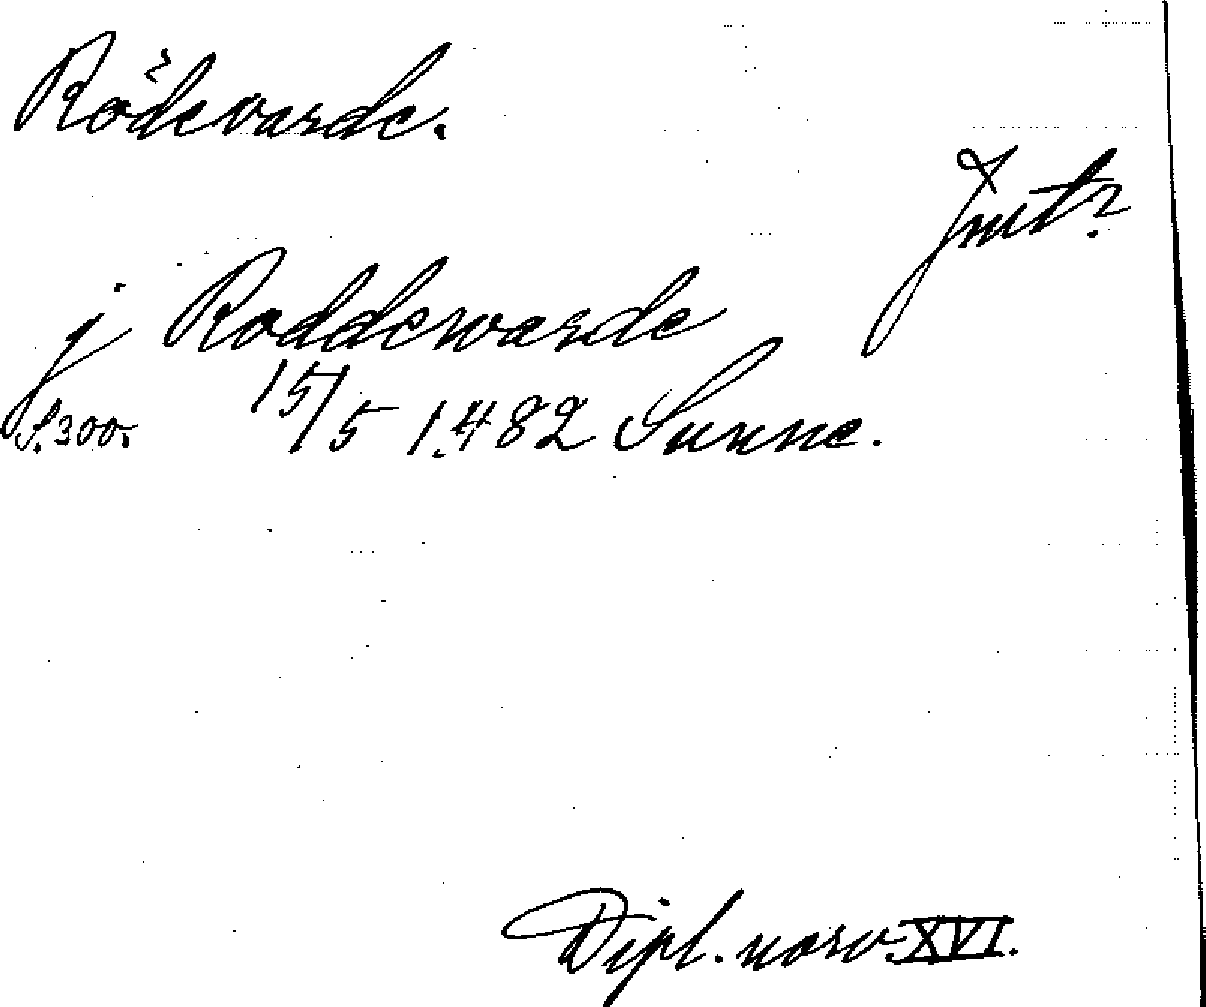 Rödevarde.
Jmt?
j Roddewarde
S. 300. 15/5 1482 Sunne.
Dipl. norv. XVI.